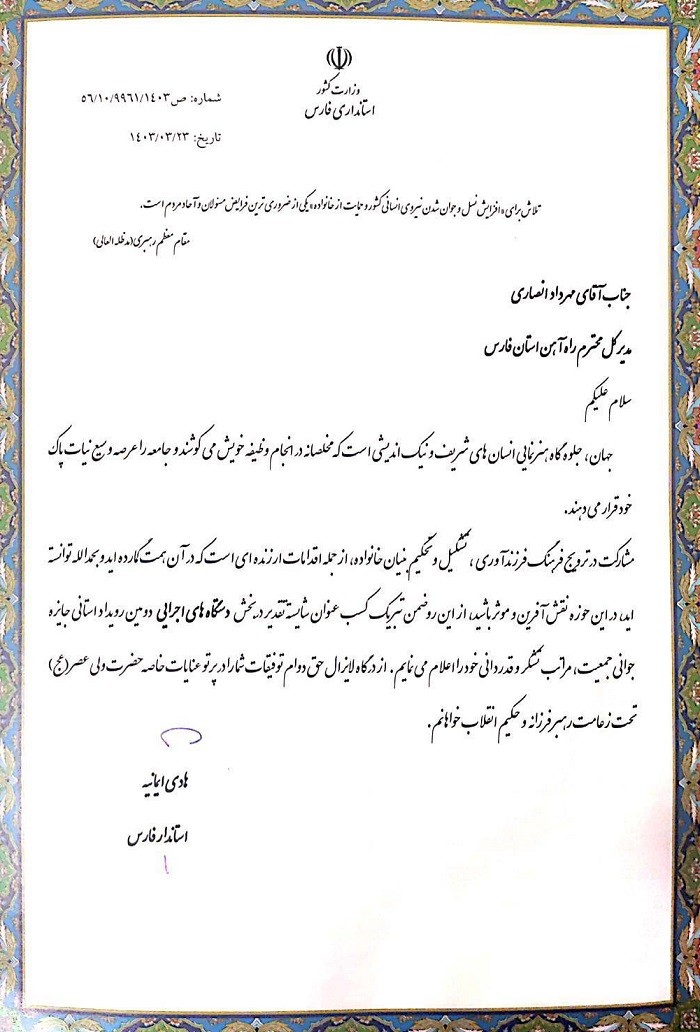 وزارت کشور
استانداری فارس
شماره: ص۵۶/۱۰/۹۹۶۱/۱۴۰۳
تاریخ: ۱۴۰۳/۰۳/۲۳
تلاش برای «افزایش نسل و جوان شدن نیروی انسانی کشور و حمایت از خانواده» یکی از ضروری ترین فرایض مسئولان و آحاد مردم است.
مقام معظم رهبری (مدظله العالی)
جناب آقای مهرداد انصاری
مدیر کل محترم راه آهن استان فارس
سلام علیکم
جهان، جلوه گاه هنرنمایی انسان های شریف و نیک اندیشی است که مخلصانه در انجام وظیفه خویش می کوشند و جامعه را عرصه وسیع نیات پاک
خود قرار می دهند.
مشارکت در ترویج فرهنگ فرزندآوری، تشکیل و تحکیم بنیان خانواده، از جمله اقدامات ارزنده ای است که در آن همت گمارده اید و بحمدالله توانسته
اید، در این حوزه نقش آفرین و موثر باشید، از این رو ضمن تبریک کسب عنوان شایسته تقدیر در بخش دستگاه های اجرایی دومین رویداد استانی جایزه
جوانی جمعیت، مراتب تشکر و قدردانی خود را اعلام می نمایم. از درگاه لایزال حق دوام توفیقات شما را در پرتو عنایات خاصه حضرت ولی عصر (عج)
تحت زعامت رهبر فرزانه و حکیم انقلاب خواهانم.
هادی ایمانیه
استاندار فارس